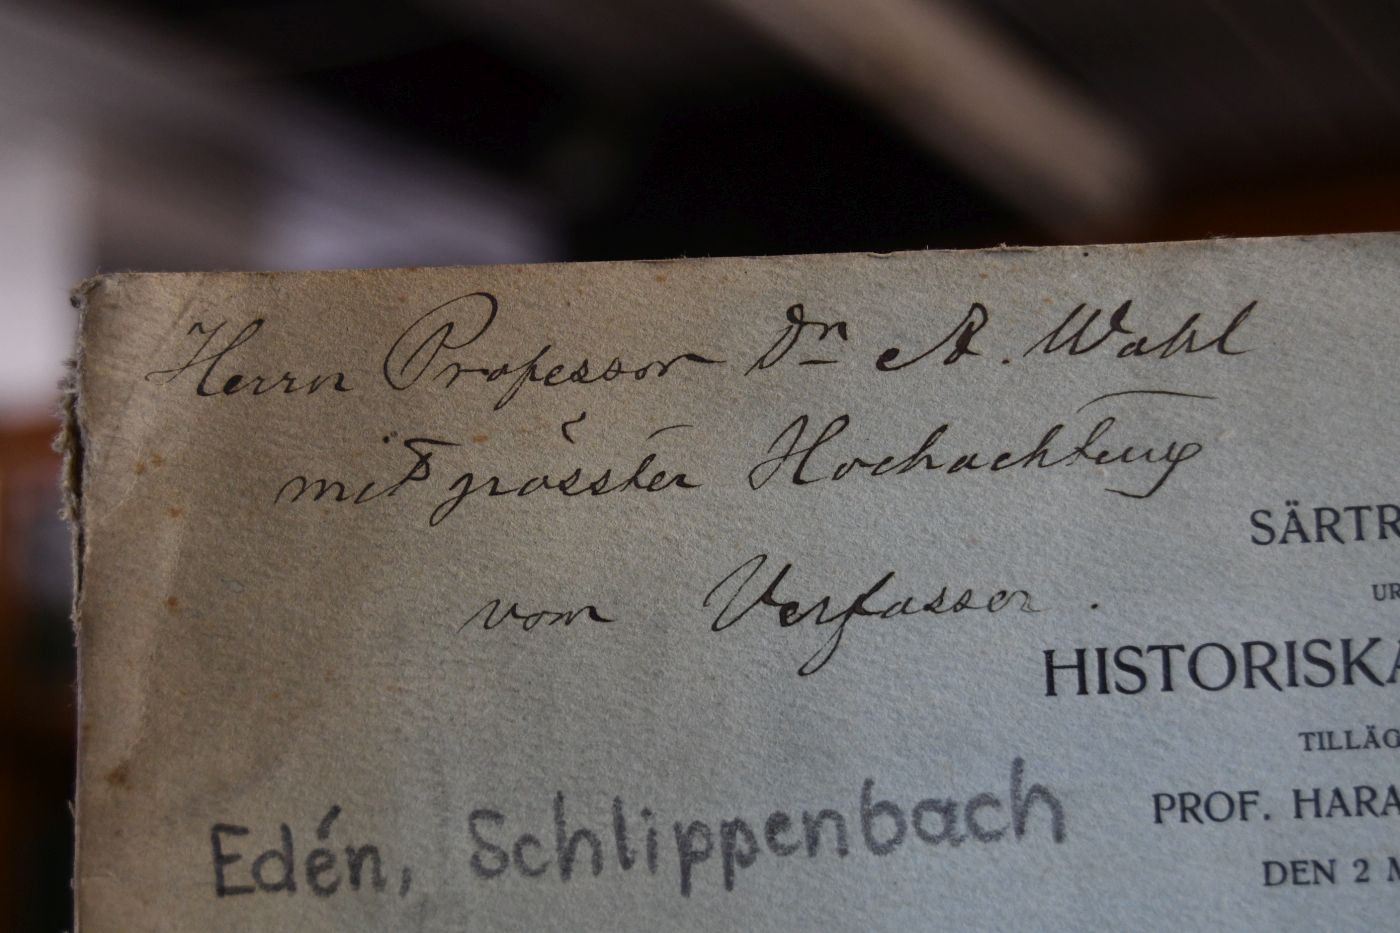 Herrn Professor Dr A. Wahl
mit grösster Hochachtung
vom Verfasser.
SÄRTR
UR
HISTORISKA
TILLÄG
PROF. HARA
DEN 2 M
Edén, Schlippenbach